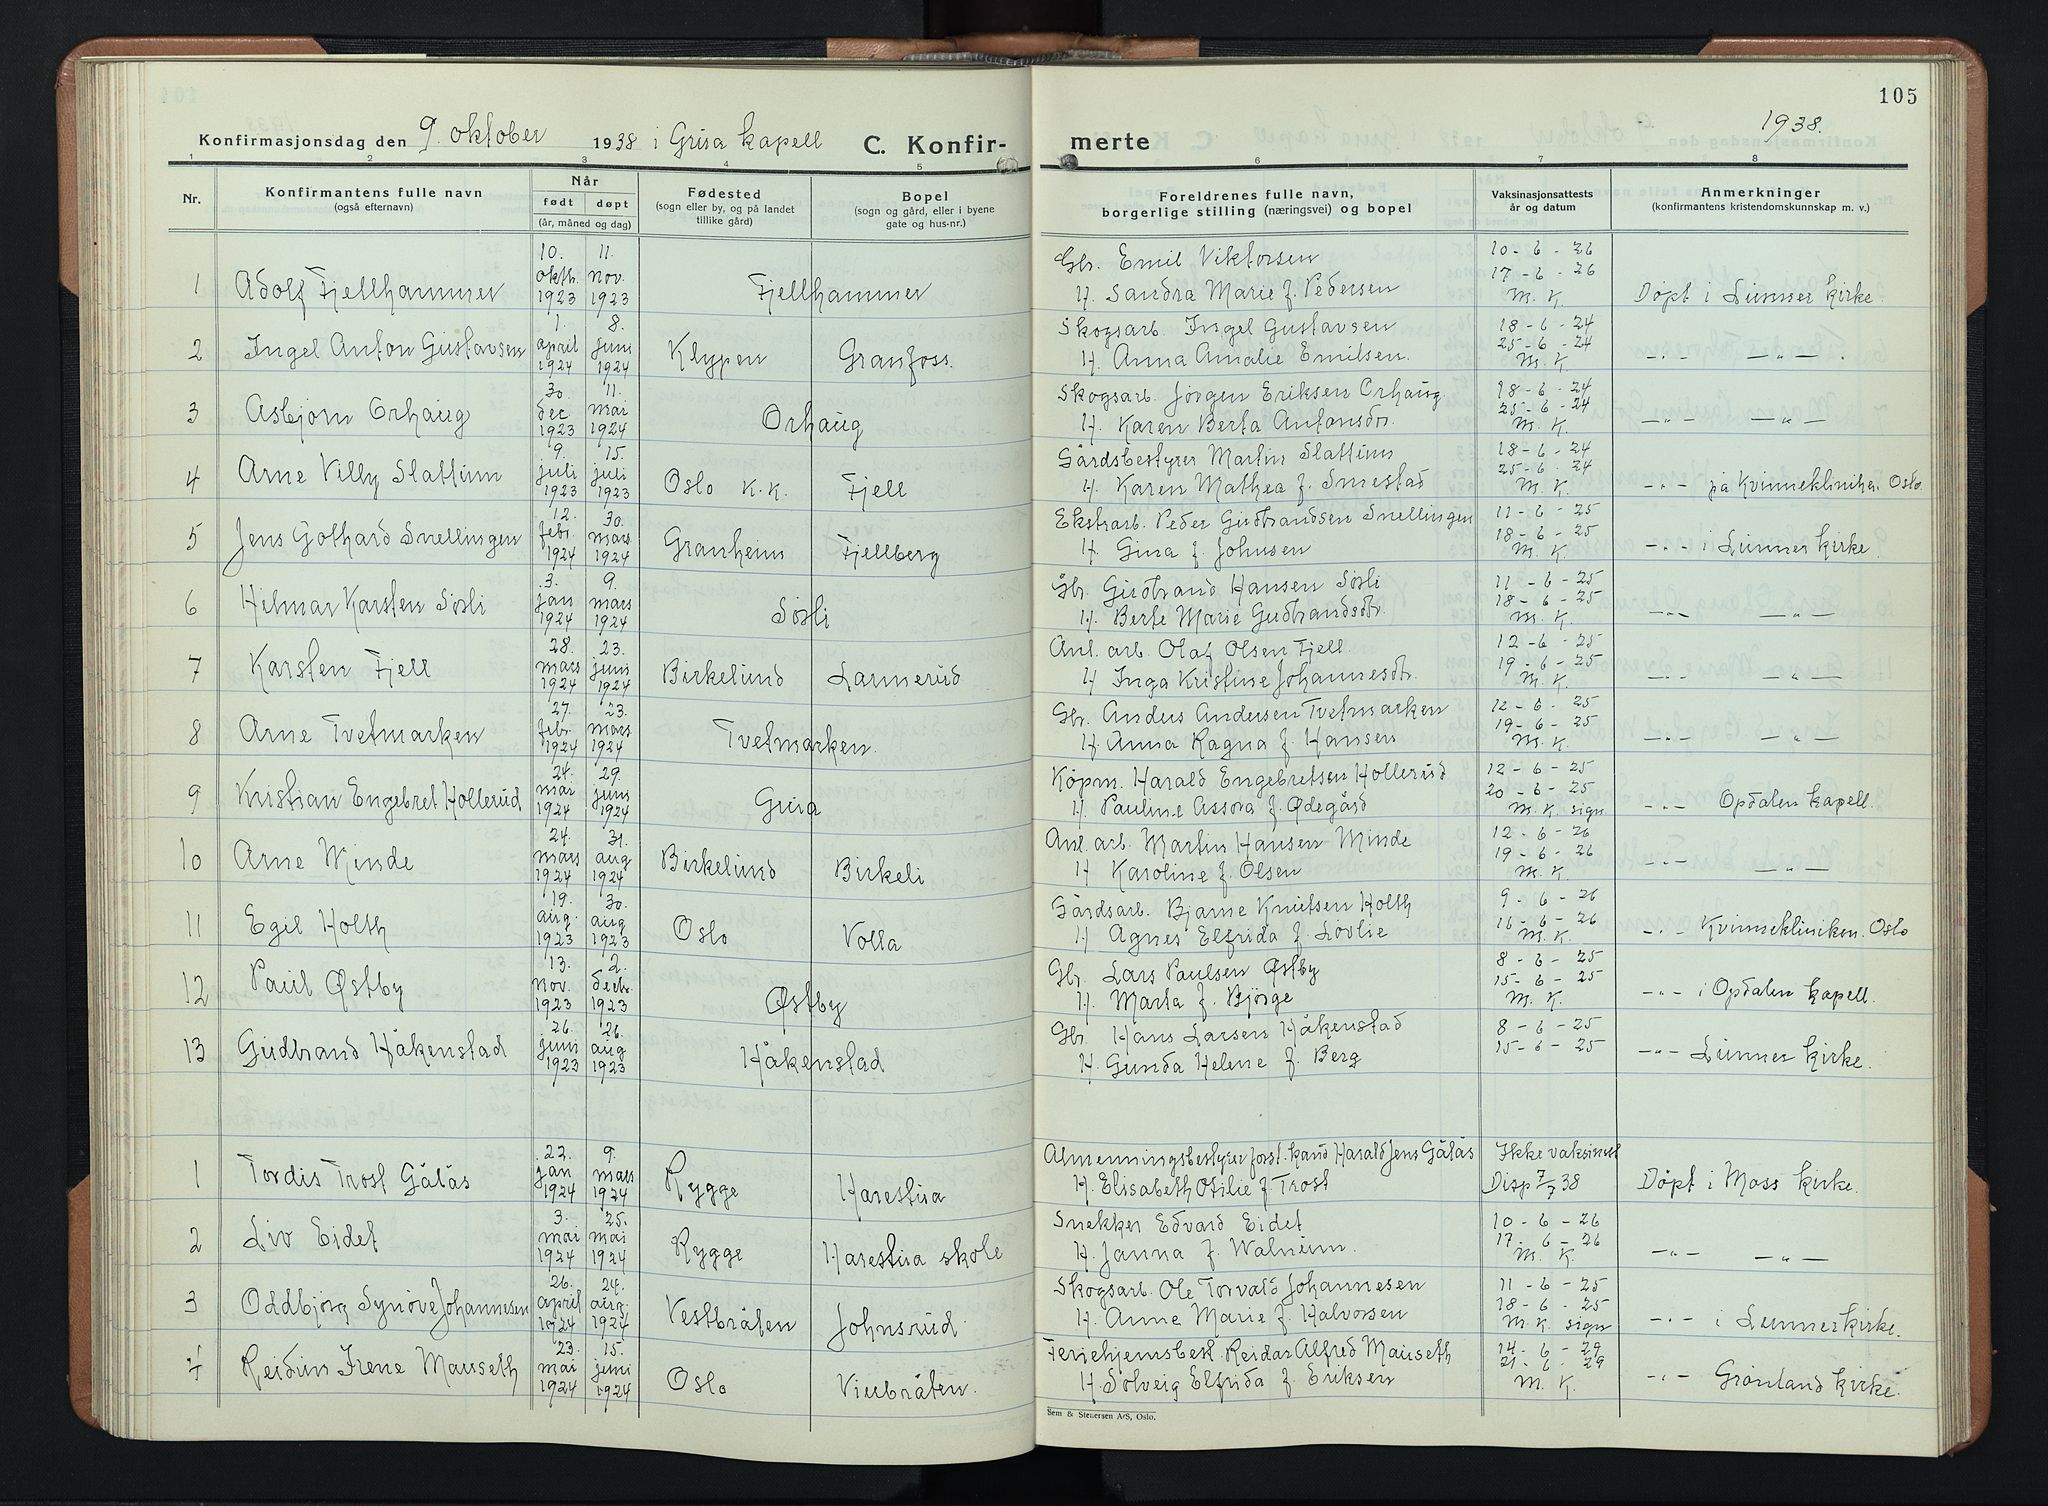 105
Konfirmasjonsdag den 9. oktober 1938 i Grua kapell C. Konfir-
merte 1938.
1 2 3 4 5 6 7 8
Nr. Konfirmantens fulle navn (også efternavn) Når født døpt (år, måned og dag) Fødested (sogn eller by, og på landet tillike gård) Bopel (sogn og gård, eller i byene gate og hus-nr.) Foreldrenes fulle navn, borgerlige stilling (næringsvei) og bopel Vaksinasjonsattests år og datum Anmerkninger (konfirmantens kristendomskunnskap m. v.)
1 Adolf Fjellhammer 10. oktb. 1923 11. nov. 1923 Fjellhammer Gbr. Emil Viktorsen H. Sandra Marie f. Pedersen 10-6-26 17-6-26 M. K. Døpt i Lunner kirke.
2 Ingel Anton Gustavsen 1. april 1924 8. juni 1924 Klypen Granfoss. Skogsarb. Ingel Gustavsen H. Anna Amalie Emilsen. 18-6-24 25-6-24 M. K. -"- -"-
3 Asbjørn Orhaug 30. dec 1923 11. mai 1924 Orhaug Skogsarb. Jørgen Eriksen Orhaug H. Karen Berta Antonsdtr. 18-6-24 25-6-24 M. K. -"- -"-
4 Arne Villy Slattum 9. juli 1923 15. juli 1923 Oslo K.K. Fjell Gårdsbestyrer Martin Slattum H. Karen Mathea f. Smestad 18-6-24 25-6-24 M. K. -"- på Kvinneklinikk. Oslo.
5 Jens Gothard Snellingen 12. febr. 1924 30. mars 1924 Granheim Fjellberg Ekstraarb. Peder Gudbrandsen Snellingen H. Gina f. Johnsen 11-6-25 18-6-25 M. K. -"- i Lunner kirke.
6 Hilmar Karsten Søsli 3. jan 1924 9. mars 1924 Søsli Gbr. Gudbrand Hansen Søsli H. Berte Marie Gudbrandsdtr. 11-6-25 18-6-25 M. K. -"- -"-
7 Karsten Fjell 28. mars 1924 23. juni 1924 Birkelund Lannerud Anl. arb. Olaf Olsen Fjell. H Inga Kristine Johannesdtr. 12-6-25 19-6-25 M. K. -"- -"-
8 Arne Tvetmarken 27. febr. 1924 23. mars 1924 Tvetmarken. Gbr. Anders Andersen Tvetmarken H. Anna Ragna f. Hansen 12-6-25 19-6-25 M. K. -"- -"-
9 Kristian Engebret Hollerud 24. mai 1924 29. juni 1924 Grua Køpm. Harald Engebretsen Hollerud H. Pauline Assora f. Ødegård 12-6-25 20-6-25 M. K. sign -"- Opdalen kapell.
10 Arne Minde 24. mars 1924 31. aug 1924 Birkelund Birkeli Anl. arb. Martin Hansen Minde H Karoline f. Olsen 12-6-26 19-6-26 M. K. -"- -"-
11 Egil Holth 19. aug. 1923 30. aug 1923 Oslo Volla Gårdsarb. Bjarne Knutsen Holth H Agnes Elfrida f. Løvlie 9-6-26 16-6-26 M. K. -"- Kvinnekliniken. Oslo
12 Paul Østby 13. nov. 1923 2. decbr. 1923 Østby Gbr. Lars Paulsen Østby H. Marta f. Bjørge 8-6-25 15-6-25 M. K. -"- i Opdalen kapell.
13 Gudbrand Håkenstad 26. juni 1923 26. aug 1923 Håkenstad Gbr. Hans Larsen Håkenstad H. Gunda Helene f. Berg 8-6-25 15-6-25 -"- Lunner kirke.
1 Tordis Trost Gålås 22. jan 1924 9. mars 1924 Rygge Harestua Almenningsbestyrer forst. kand Harald Jens Gålås H. Elisabeth Otilie f Trost Ikke vaksinert Disp 7/7 38 Døpt i Moss kirke.
2 Liv Eidet 3. mai 1924 25. mai 1924 Rygge Harestua skole Snekker Edvard Eidet H. Janna f. Walheim. 10-6-26 17-6-26 M. K. -"- -"-
3 Oddbjørg Synøve Johannesen 26. april 1924 24. aug. 1924 Vestbråten Johnsrud Skogsarb. Ole Torvald Johannesen H. Anne Marie f Halvorsen 11-6-25 18-6-25 M. K. sign -"- i Lunner kirke.
4 Reidun Irene Mauseth 23. mai 1924 15. juni 1924 Oslo Vinbråten. Feriehjemsbest. Reidar Alfred Mauseth H. Solveig Elfrida f. Eriksen 14-6-29 21-6-29 M. K. -"- Grønland kirke.
Sem & Stenersen A/S, Oslo.